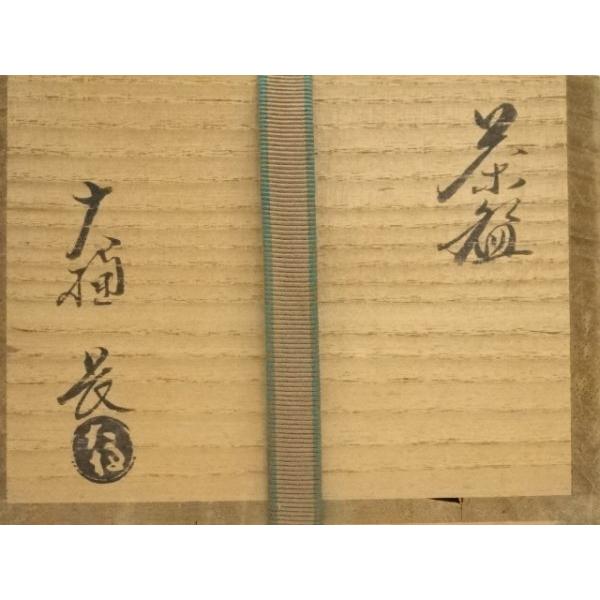 茶盌
大樋 長